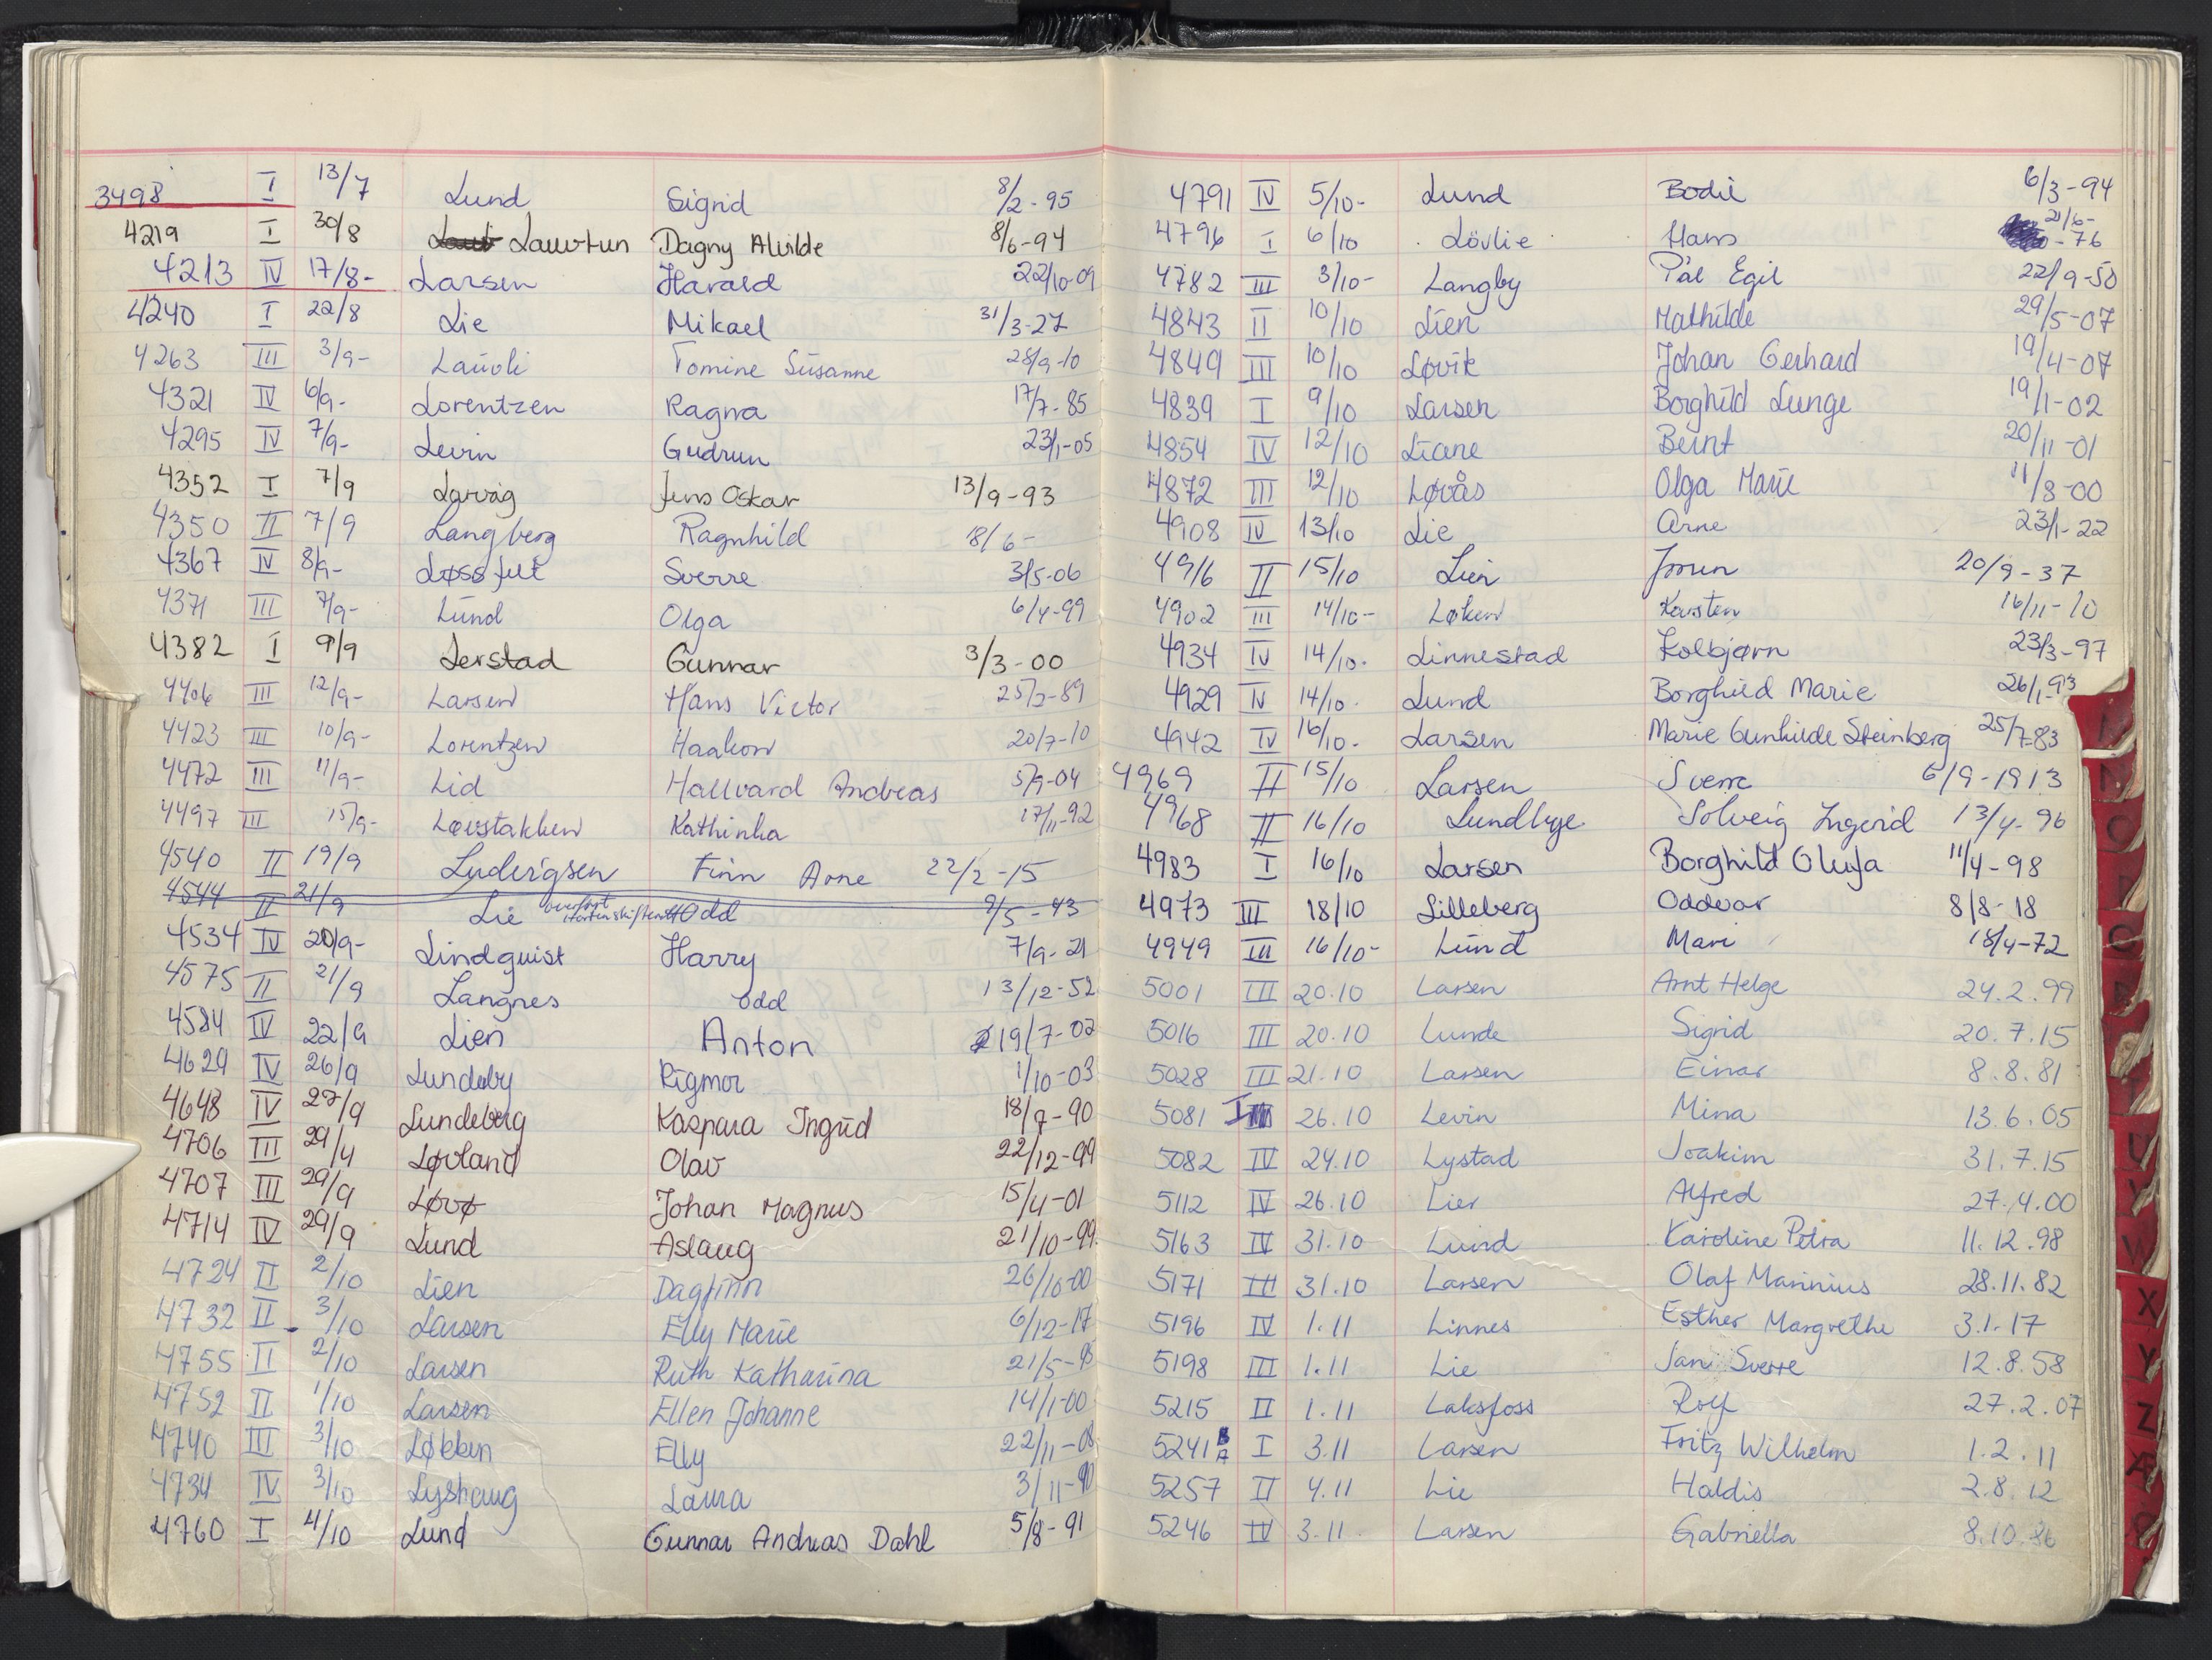 3498 I 13/7 Lund Sigrid 8/2-95
4219 I 30/8 Lauvtun Dagny Alvilde 8/6-94
4213 IV 17/8- Larsen Harald 22/10-09
4240 I 22/8 Lie Mikael 31/3-27
4263 III 3/9- Lauvli Tomine Susanne 28/9-10
4321 IV 6/9- Lorentzen Ragna 17/7-85
4295 IV 7/9- Levin Gudrun 23/1-05
4352 I 7/9 Larvåg Jens Oskar 13/9-93
4350 II 7/9 Langberg Ragnhild 18/6-
4367 IV 8/9- Løssfelt Sverre 3/5-06
4371 III 7/9- Lund Olga 6/4-99
4382 I 9/9 Lerstad Gunnar 3/3-00
4406 III 12/9- Larsen Hans Victor 25/2-89
4423 III 10/9- Lorentzen Haakon 20/7-10
4472 III 11/9- Lid Hallvard Andreas 5/9-04
4497 III 15/9- Løvstakken Kathinka 17/11-92
4540 II 19/9 Ludvigsen Finn Arne 22/2-15
4544 II 21/9 Lie overført Odd 9/5-43
4534 IV 20/9- Lindquist Harry 7/9-21
4575 II 21/9 Langnes Odd 13/12-52
4584 IV 22/9 Lien Anton 19/7-02
4629 IV 26/9 Lundeby Rigmor 1/10-03
4648 IV 27/9 Lundeberg Kaspara Ingrid 18/9-90
4706 III 29/4 Løvland Olav 22/12-99
4707 III 29/9 Løvø Johan Magnus 15/4-01
4714 IV 29/9 Lund Aslaug 21/10-99
4724 II 2/10 Lien Dagfinn 26/10-00
4732 II 3/10 Larsen Elly Marie 6/12-17
4755 II 2/10 Larsen Ruth Katharina 21/5-95
4752 II 1/10 Larsen Ellen Johanne 14/1-00
4740 III 3/10 Løkken Elly 22/11-08
4734 IV 3/10 Lyshaug Laura 3/11-90
4760 I 4/10 Lund Gunnar Andreas Dahl 5/8-91
4791 IV 5/10- Lund Bodil 6/3-94
4796 I 6/10 Lövlie Hans 21/6-76
4782 III 3/10- Langby Pål Egil 22/9-50
4843 II 10/10 Lien Mathilde 29/5-07
4849 III 10/10 Løvik Johan Gerhard 19/4-07
4839 I 9/10 Larsen Borghild Lunge 19/1-02
4854 IV 12/10 Liane Bernt 20/11-01
4872 III 12/10 Løvås Olga Marie 11/8-00
4908 IV 13/10 Lie Arne 23/1-22
4916 II 15/10 Lien Jorun 20/9-37
4902 III 14/10- Løken Karsten 16/11-10
4934 IV 14/10- Linnestad Kolbjørn 23/3-97
4929 IV 14/10- Lund Borghild Marie 26/1-93
4942 IV 16/10- Larsen Marie Gunhilde Steinberg 25/7-83
4969 II 15/10 Larsen Sverre 6/9-1913
4968 II 16/10 Lundbye Solveig Ingerid 13/4-96
4983 I 16/10 Larsen Borghild Olufa 11/4-98
4973 III 18/10 Lilleberg Oddvar 8/8-18
4949 III 16/10- Lund Mari 18/4-72
5001 III 20.10 Larsen Arnt Helge 24.2.99
5016 III 20.10 Lunde Sigrid 20.7.15
5028 III 21.10 Larsen Einar 8.8.81
5081 I 26.10 Levin Mina 13.6.05
5082 IV 24.10 Lystad Joakim 31.7.15
5112 IV 26.10 Lier Alfred 27.4.00
5163 IV 31.10 Lund Karoline Petra 11.12.98
5171 III 31.10 Larsen Olaf Marinius 28.11.82
5196 IV 1.11 Linnes Esther Margrethe 3.1.17
5198 III 1.11 Lie Jan Sverre 12.8.58
5215 II 1.11 Laksfoss Rolf 27.2.07
5241 B A I 3.11 Larsen Fritz Wilhelm 1.2.11
5257 II 4.11 Lie Haldis 2.8.12
5246 IV 3.11 Larsen Gabriella 8.10.86
X
Y
Z
Æ